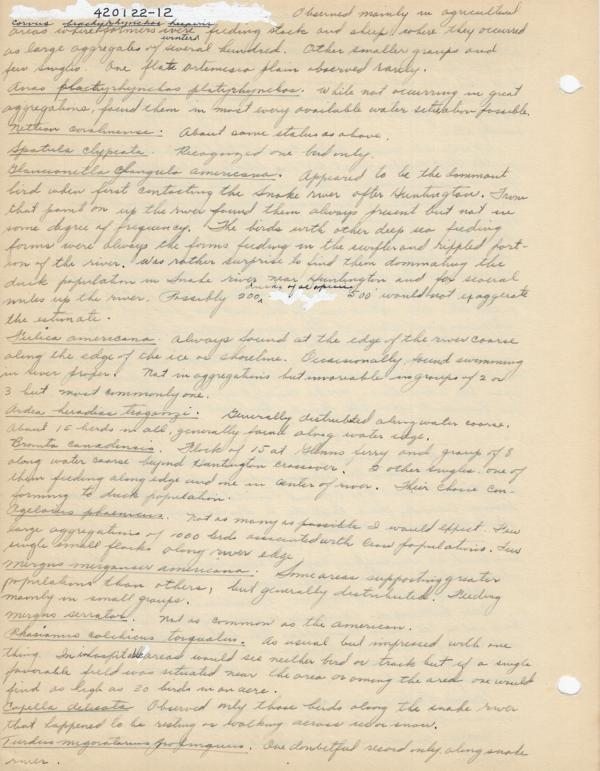 420122-12
Corvus brachyrhynchos hesperis Observed mainly in agricultural
areas where farmers were feeding stock and sheep where they occurred
winter
as large aggregates of several hundred. Other smaller groups and
few singles. One flat artemesia plain observed rarely.
Anas platyrhynchos platyrhynchos. While not occurring in great
aggregations, found them in most every available water situation possible.
Nettion carolinense: About same status as above.
Spatula clypeata. Recognized one bird only.
Glaucionella clangula americana. Appeared to be the dominant
bird when first contacting the Snake river after Huntington. From
that point on up the river found them always present but not in
some degree of frequency. The birds with other deep sea feeding
forms were always the forms feeding in the swifter and rippled port-
ion of the river. Was rather surprise to find them dominating the
duck population in Snake river near Huntington and for several
miles up the river. Possibly 200, 500 would not exaggerate
the estimate.
Fulica americana. Always found at the edge of the river coarse
along the edge of the ice or shoreline. Occasionally found swimming
in river proper. Not in aggregations but invariable in groups of 2 or
3 but most commonly one.
Ardea herodias treganzi: Generally distributed along water coarse.
About 15 birds in all, generally found along water edge.
Branta canadensis. Flock of 15 at Glenns ferry and group of 8
along water coarse beyond Huntington crossover. 2 other singles. one of
them feeding along edge and one in center of river. Their choice con-
forming to duck population.
Agelaius phoeniceus. Not as many as possible I would expect. Few
large aggregations of 1000 birds associated with Crow populations. Few
single small flocks along river edge
Mergus merganser americana. Some areas supporting greater
populations than others, but generally distributed. Feeding
mainly in small groups.
Mergus serrator. Not as common as the American.
Phasianus colchicus torquatus. As usual but impressed with one
thing. In hospitable areas would see neither bird or track but if a single
favorable field was situated near the area or among the area one would
find as high as 20 birds in an acre.
Capella delicata Observed only those birds along the snake river
that happened to be resting or walking across ice or snow.
Turdus migratorius propinquus. One doubtful record only, along snake
river.